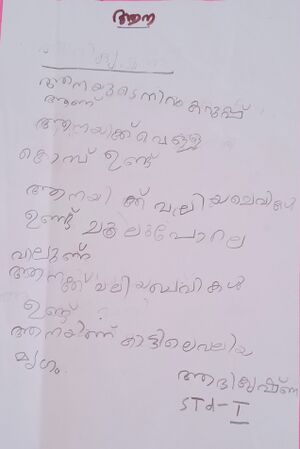 ആന
ആനയുടെ നിറം കറുപ്പ്
ആണ്
ആനയിക്ക് വെള്ള
കൊമ്പ് ഉണ്ട്
ആനയിക്ക് വലിയചെവികൾ
ഉണ്ട് ചൂലുപോലെ
വാലുണ്ട്
ആനക്ക് വലിയചെവികൾ
ഉണ്ട്
ആനയിണ് കാട്ടിലെവലിയ
മൃഗം.
ആദികൃഷ്ണ
STd-I